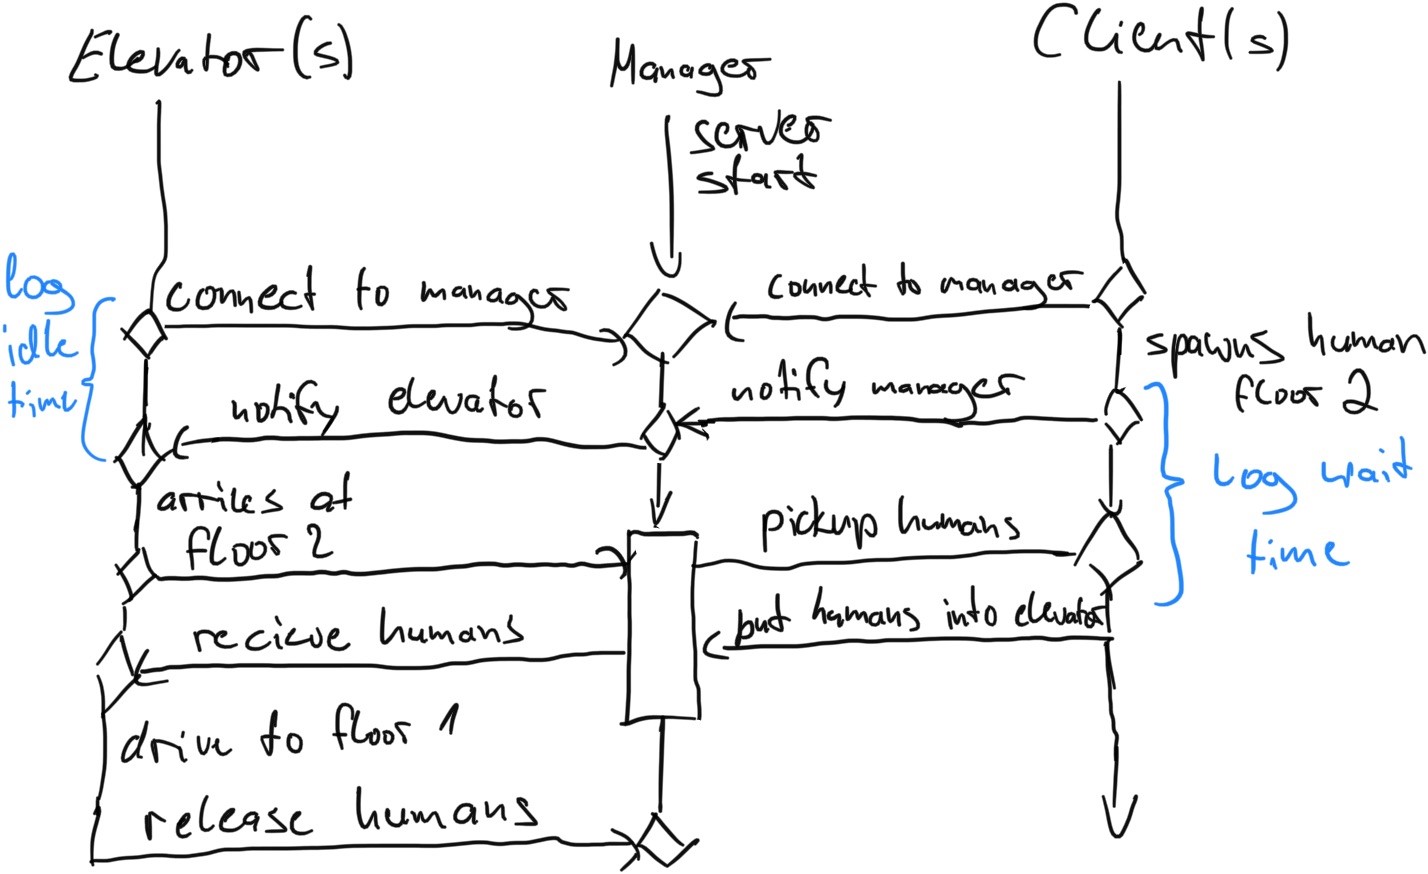 Elevator(s)
Manager
Client(s)
server
start
log
idle
time
connect to manager
connect to manager
spawns human
floor 2
notify elevator
notify manager
log wait
time
arrives at
floor 2
pickup humans
recieve humans
put humans into elevator
drive to floor 1
release humans